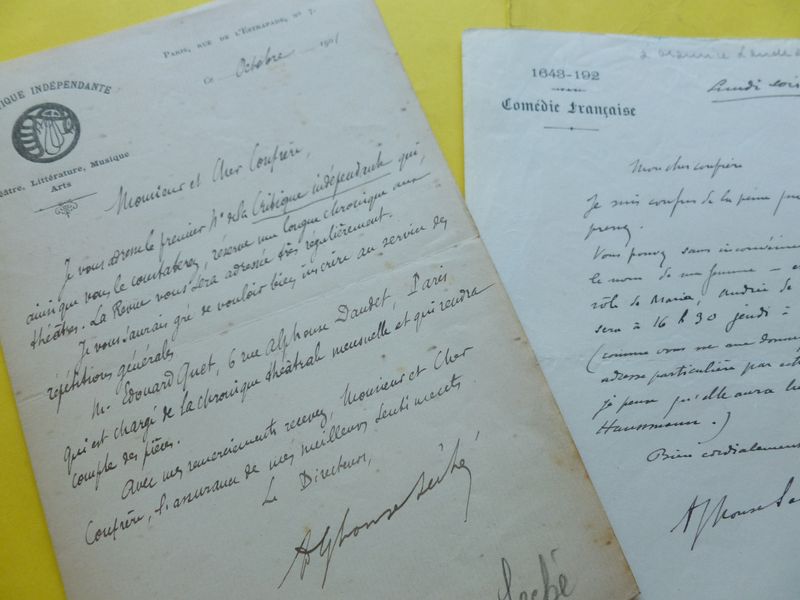 Paris, rue de l'Estrapade, N° 7.
Ce Octobre 1901
IQUE INDÉPENDANTE
éâtre, Littérature, Musique
Arts
Monsieur et Cher Confrère,
Je vous adresse le premier N° de la Critique indépendante qui,
ainsi que vous le constaterez, réserve une longue chronique aux
théâtres. La Revue vous sera adressée très régulièrement.
Je vous saurais gré de vouloir bien inscrire au service des
répétitions générales
Mr. Edouard Quet, 6 rue Alphonse Daudet, Paris
qui est chargé de la chronique théâtrale mensuelle et qui rendra
compte des pièces.
Avec mes remerciements recevez, Monsieur et Cher
Confrère, l'assurance de mes meilleurs sentiments
Le Directeur,
Alphonse Séché
Séché
à
Lundi soir
1643-192
Comédie Française
Mon cher confrère
Je suis confus de la peine que
prenez.
Vous pouvez sans inconvénient
le nom de ma femme – 
rôle de Maria,
sera à 16 h 30 jeudi à
(comme vous me
adresse particulière par
je pense qu'elle aura
Haussmann.)
Bien cordialement
Alphonse Sé